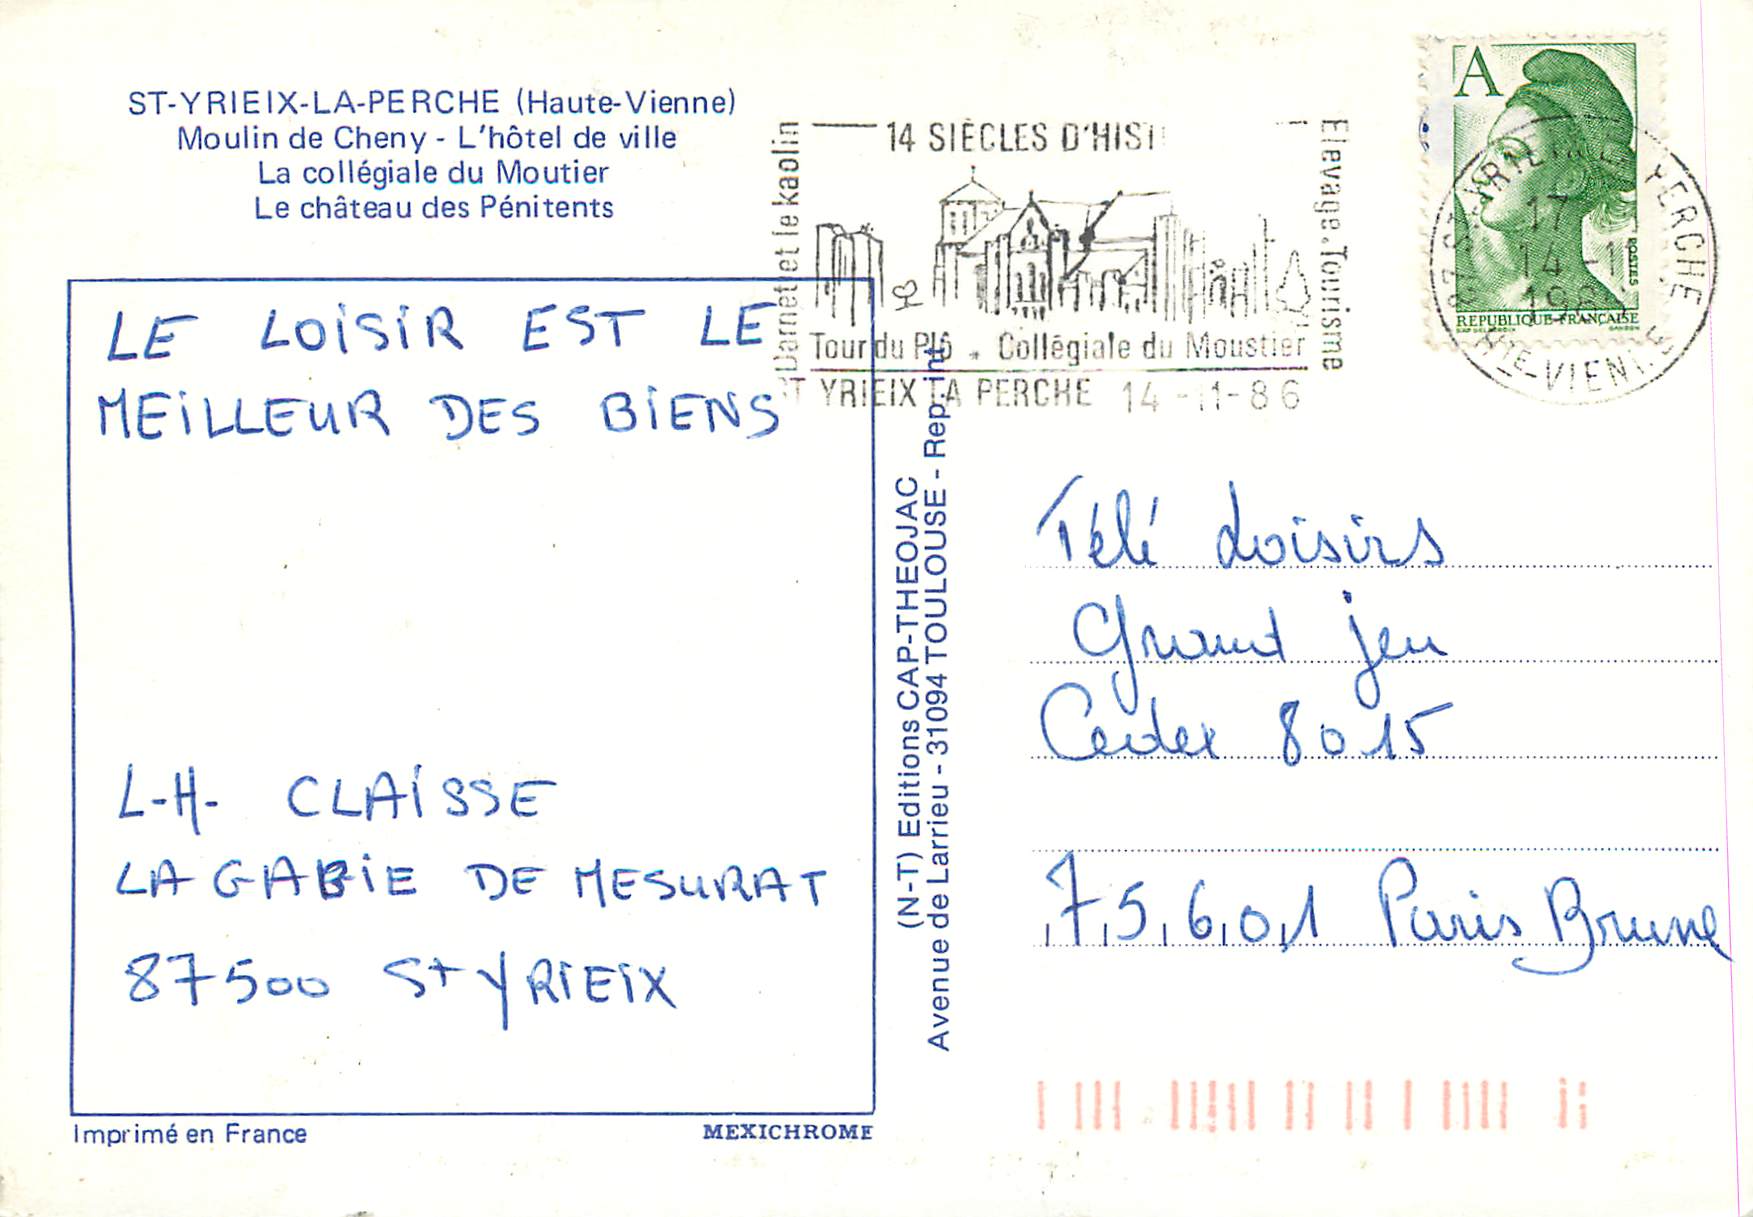 ST-YRIEIX-LA-PERCHE (Haute-Vienne)
Moulin de Cheny - L'hôtel de ville
La collégiale du Moutier
Le château des Pénitents
LE LOISIR EST LE
MEILLEUR DES BIENS
L-H- CLAISSE
LA GABIE DE MESURAT
87500 St YRIEIX
Imprimé en France
MEXICHROME
(N-T) Editions CAP-THEOJAC
Avenue de Larrieu - 31094 TOULOUSE - Rep. int
14 SIÈCLES D'HIST
Darnet et le kaolin
Elevage. Tourisme
Tour du Plô . Collégiale du Moustier
ST YRIEIX LA PERCHE 14-11-86
A
POSTES
REPUBLIQUE FRANÇAISE
PERCHE
17
14 -11
198
HTE-VIENNE
Télé Loisirs
Grand jeu
Cedex 8015
75601 Paris Brune